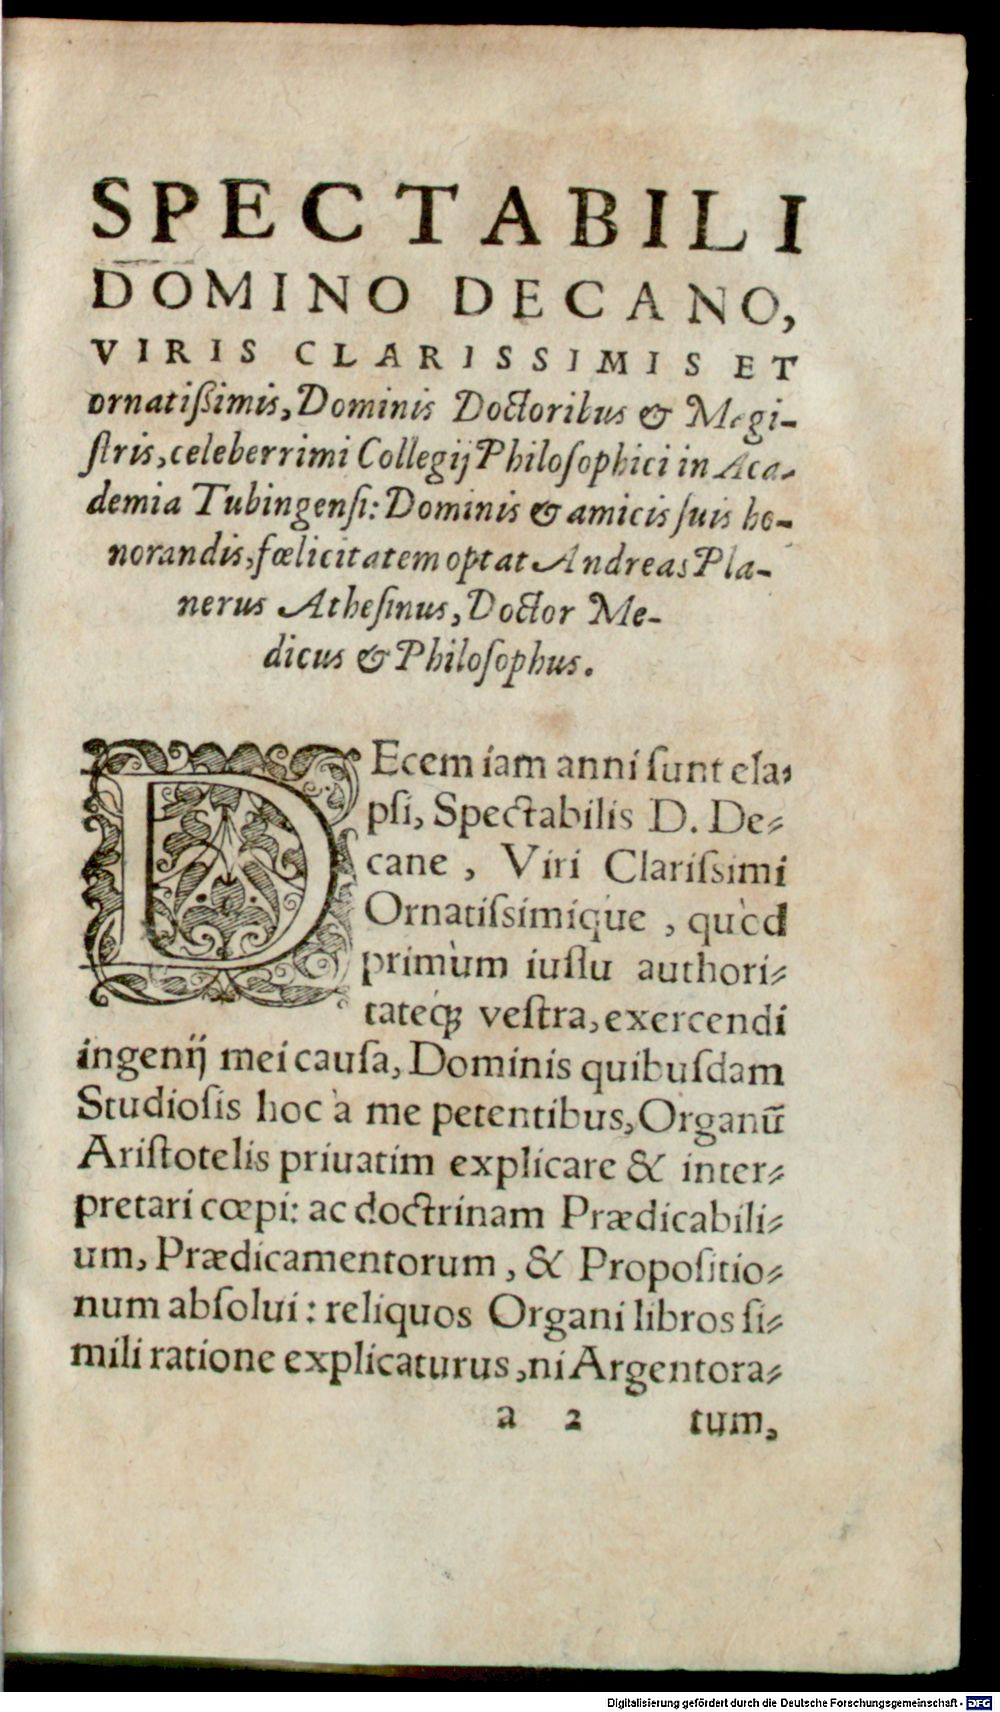 SPECTABILI
DOMINO DECANO,
VIRIS CLARISSIMIS ET
ornatißimis, Dominis Doctoribus & Magi-
ſtris, celeberrimi Collegij Philoſophici in Aca-
demia Tubingenſi: Dominis & amicis ſuis ho-
norandis, fœlicitatem optat Andreas Pla-
nerus Atheſinus, Doctor Me-
dicus & Philoſophus.
DEcem iam anni ſunt ela-
pſi, Spectabilis D. De-
cane, Viri Clariſsimi
Ornatiſsimique, quòd
primùm iuſſu authori-
tateq́ꝫ veſtra, exercendi
ingenij mei cauſa, Dominis quibuſdam
Studioſis hoc à me petentibus, Organū
Ariſtotelis priuatim explicare & inter-
pretari cœpi: ac doctrinam Prædicabili-
um, Prædicamentorum, & Propoſitio-
num abſolui: reliquos Organi libros ſi-
mili ratione explicaturus, ni Argentora-
a 2 tum,
Digitalisierung gefördert durch die Deutsche Forschungsgemeinschaft - DFG